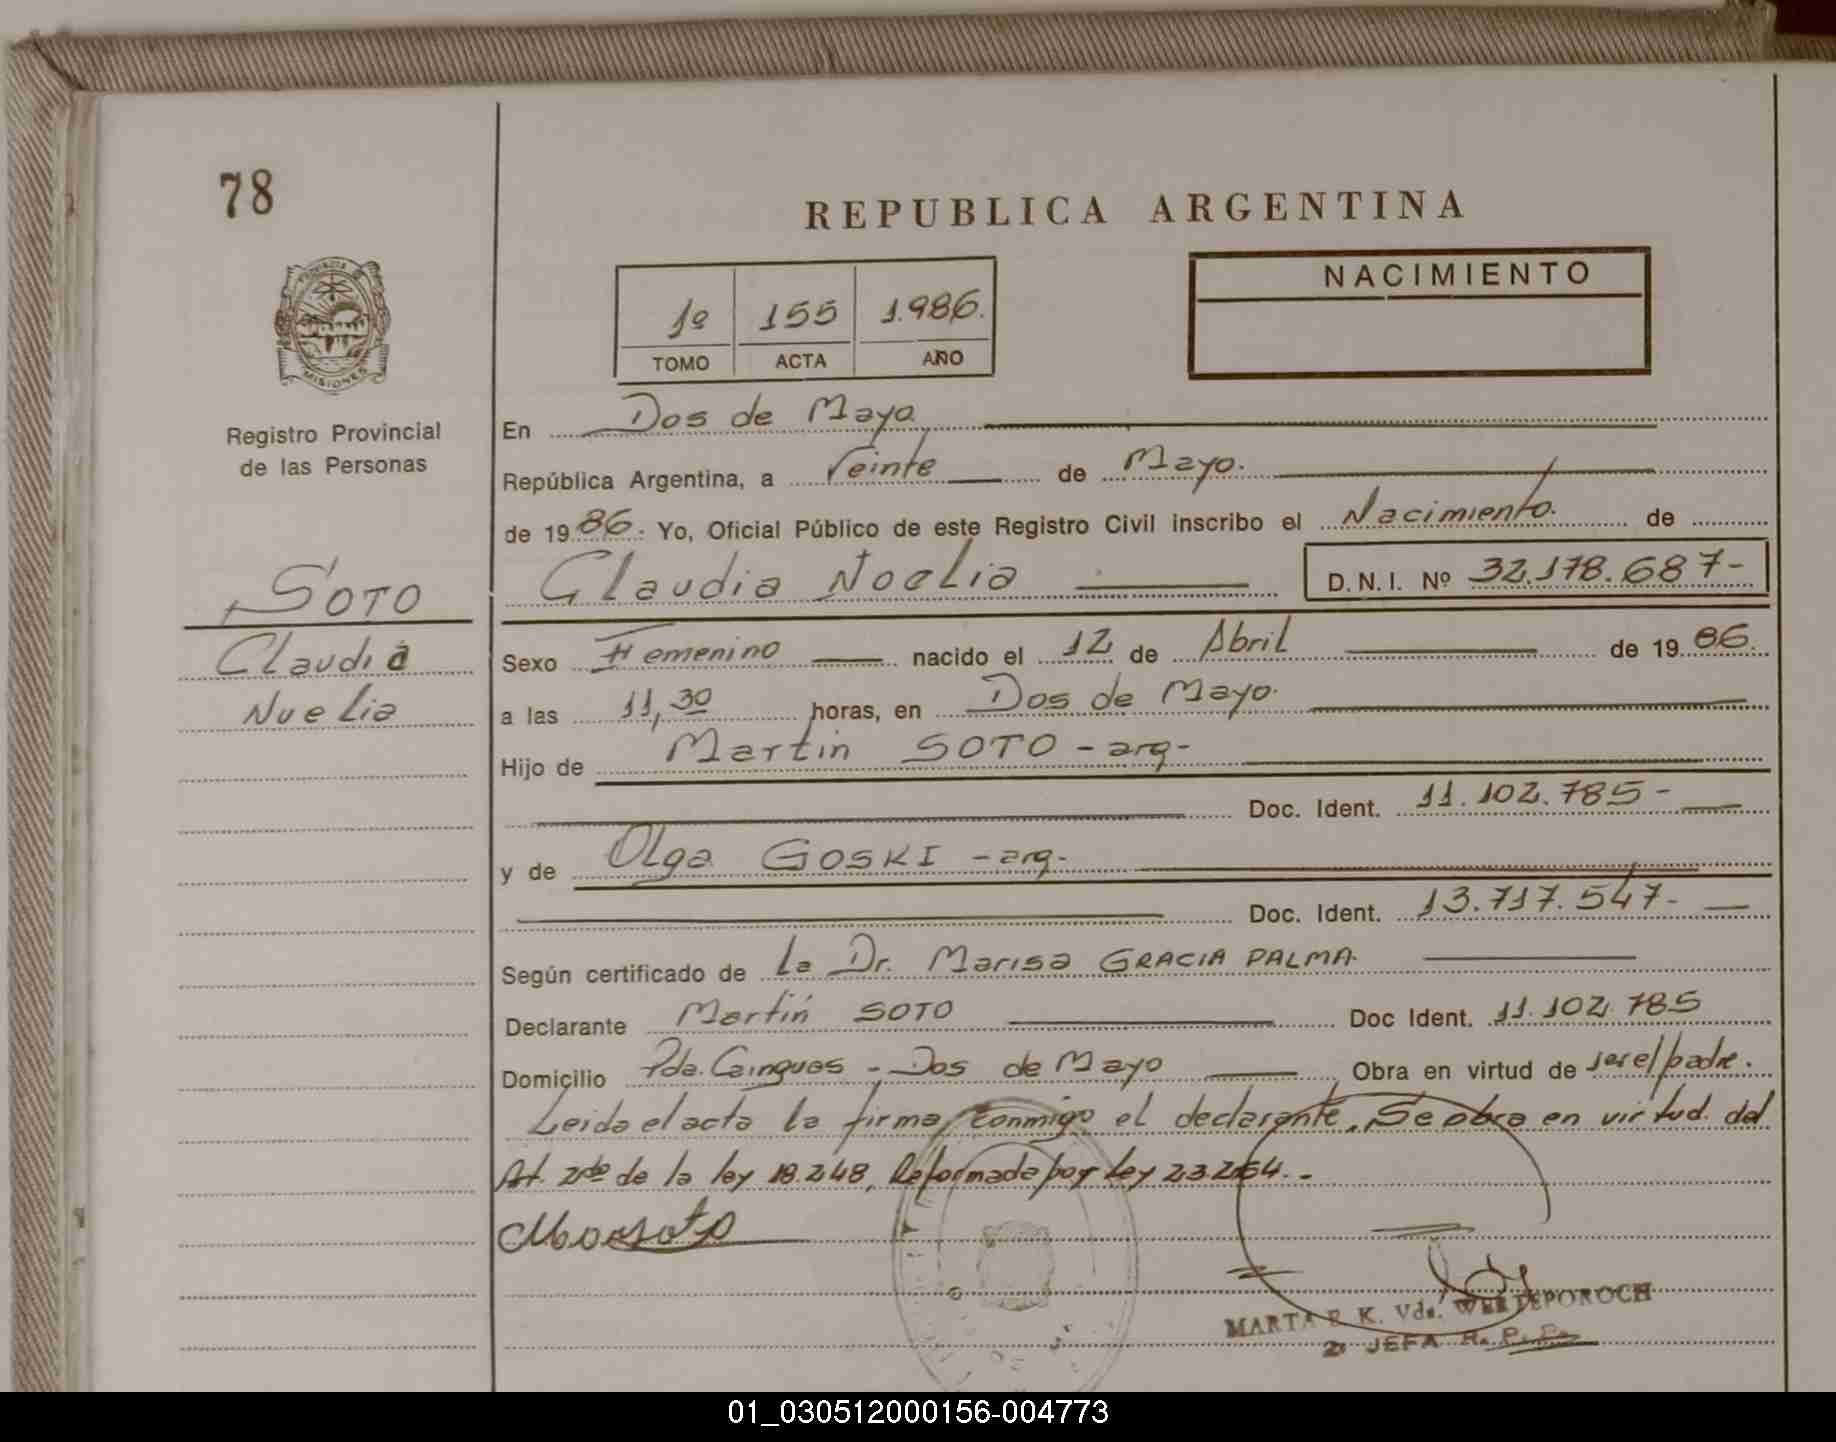 78
REPUBLICA ARGENTINA
1º 155 1.986.
TOMO ACTA AÑO
NACIMIENTO
PROVINCIA
MISIONES
Registro Provincial
de las Personas
SOTO
Claudia
Nuelia
En Dos de Mayo
República Argentina, a Veinte de Mayo.
de 1986. Yo, Oficial Público de este Registro Civil inscribo el Nacimiento. de
Claudia Noelia D.N.I. Nº 32.178.687-
Sexo Femenino nacido el 12 de Abril de 1986.
a las 11,30 horas, en Dos de Mayo.
Hijo de Martin SOTO - arg-
Doc. Ident. 11.102.785-
y de Olga GOSKI - arg-
Doc. Ident. 13.717.547-
Según certificado de La Dr. Marisa GRACIA PALMA.
Declarante Martín SOTO Doc Ident. 11.102.785
Domicilio Pda. Cainguas - Dos de Mayo Obra en virtud de ser el padre.
Leida el acta la firma conmigo el declarante. Se obra en virtud del
At. 2do de la ley 18.248, Reformada por Ley 23264.-
MARTA E. K. Vda. WERTEPOROCH
JEFA R. P. P.
01_030512000156-004773